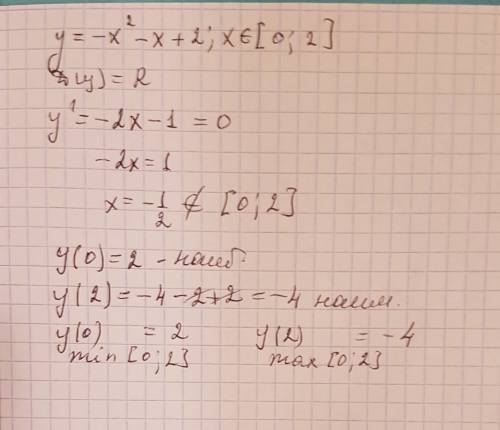 y = -x² - x + 2; x∈[0; 2]
D(y) = R
y' = -2x - 1 = 0
-2x = 1
x = -1/2 ∉ [0; 2]
y(0) = 2 - наиб.
y(2) = -4 - 2 + 2 = -4 наим.
y(0) = 2 y(2) = -4
min [0; 2] max [0; 2]